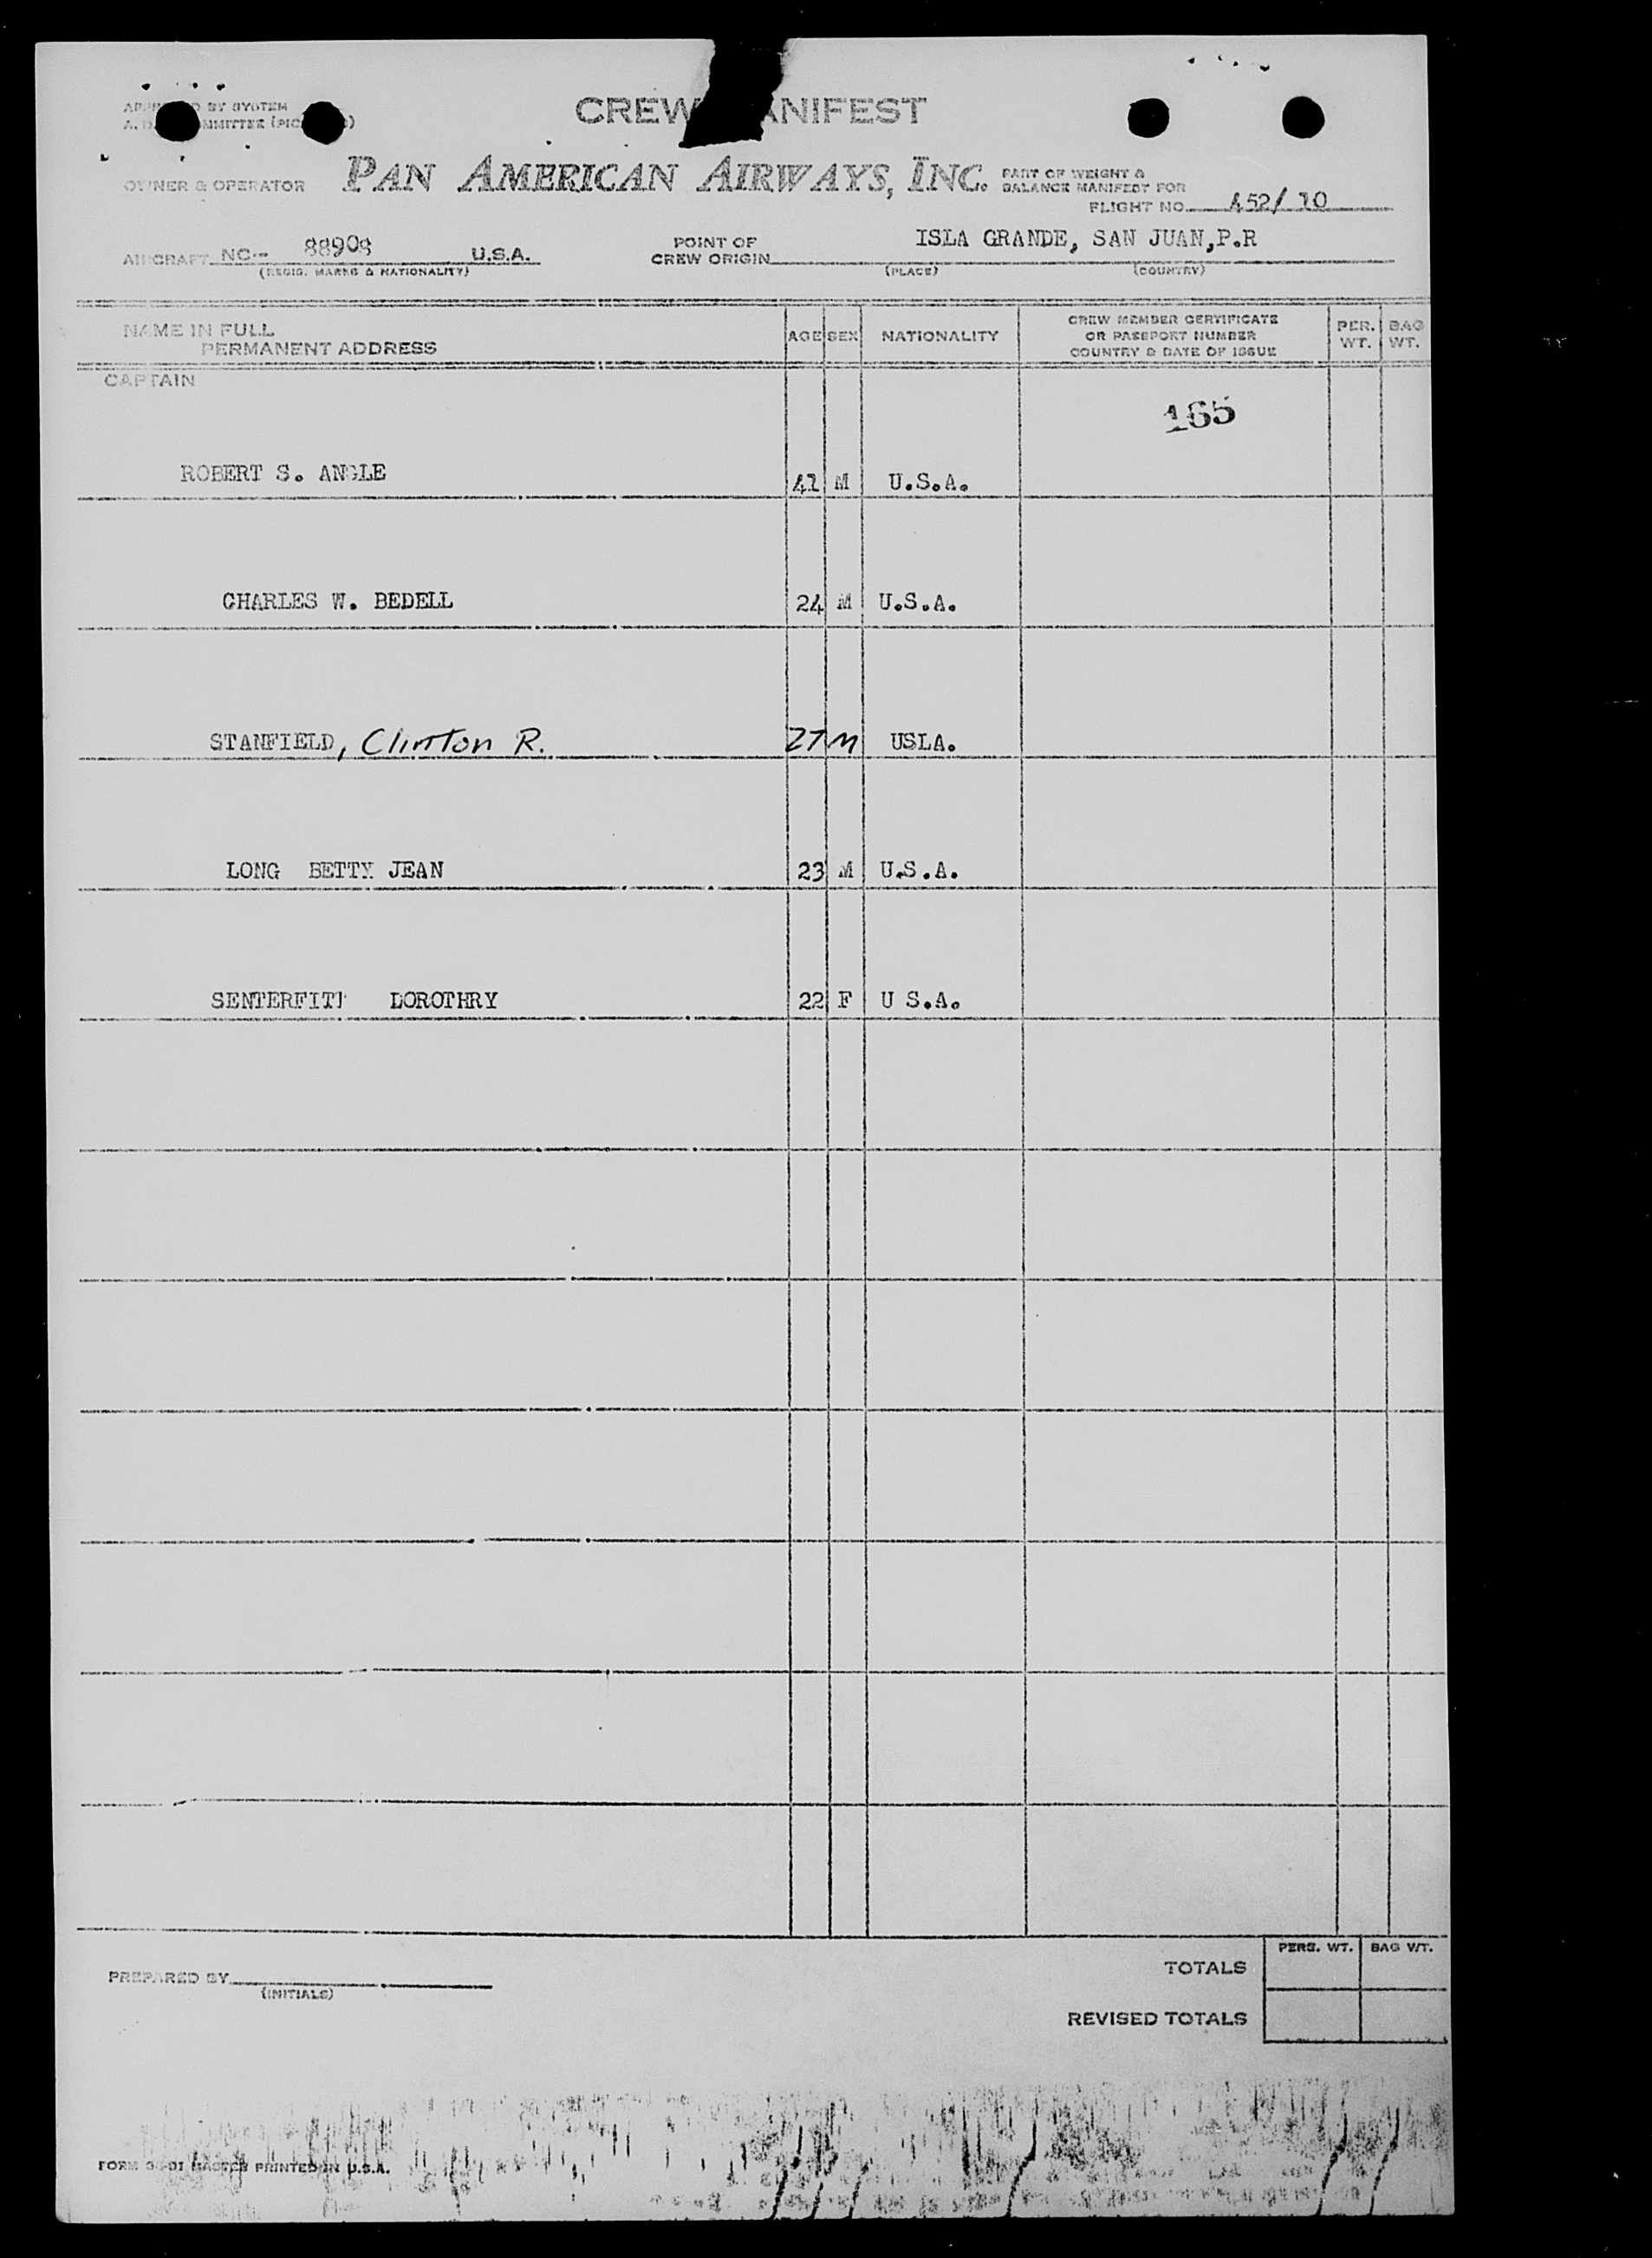 BY SYSTEM
CREW ANIFEST
OWNER & OPERATOR PAN AMERICAN AIRWAYS, INC. PART OF WEIGHT & BALANCE MANIFEST FOR
FLIGHT NO. 452/ 10
AIRCRAFT NC-- 88908 U.S.A. POINT OF CREW ORIGIN ISLA GRANDE, SAN JUAN,P.R
(REGIS. MARKS & NATIONALITY) (PLACE) (COUNTRY)
NAME IN FULL
PERMANENT ADDRESS
AGE SEX NATIONALITY
CREW MEMBER CERTIFICATE
OR PASSPORT NUMBER
COUNTRY & DATE OF ISSUE
PER. WT.
BAG WT.
CAPTAIN
165
ROBERT S. ANGLE 41 M U.S.A.
CHARLES W. BEDELL 24 M U.S.A.
STANFIELD, Clinton R. 27 M USLA.
LONG BETTY JEAN 23 M U.S.A.
SENTERFITT DOROTHRY 22 F U S.A.
PERS. WT. BAG WT.
PREPARED BY TOTALS
(INITIALS)
REVISED TOTALS
FORM PRINTED IN U.S.A.